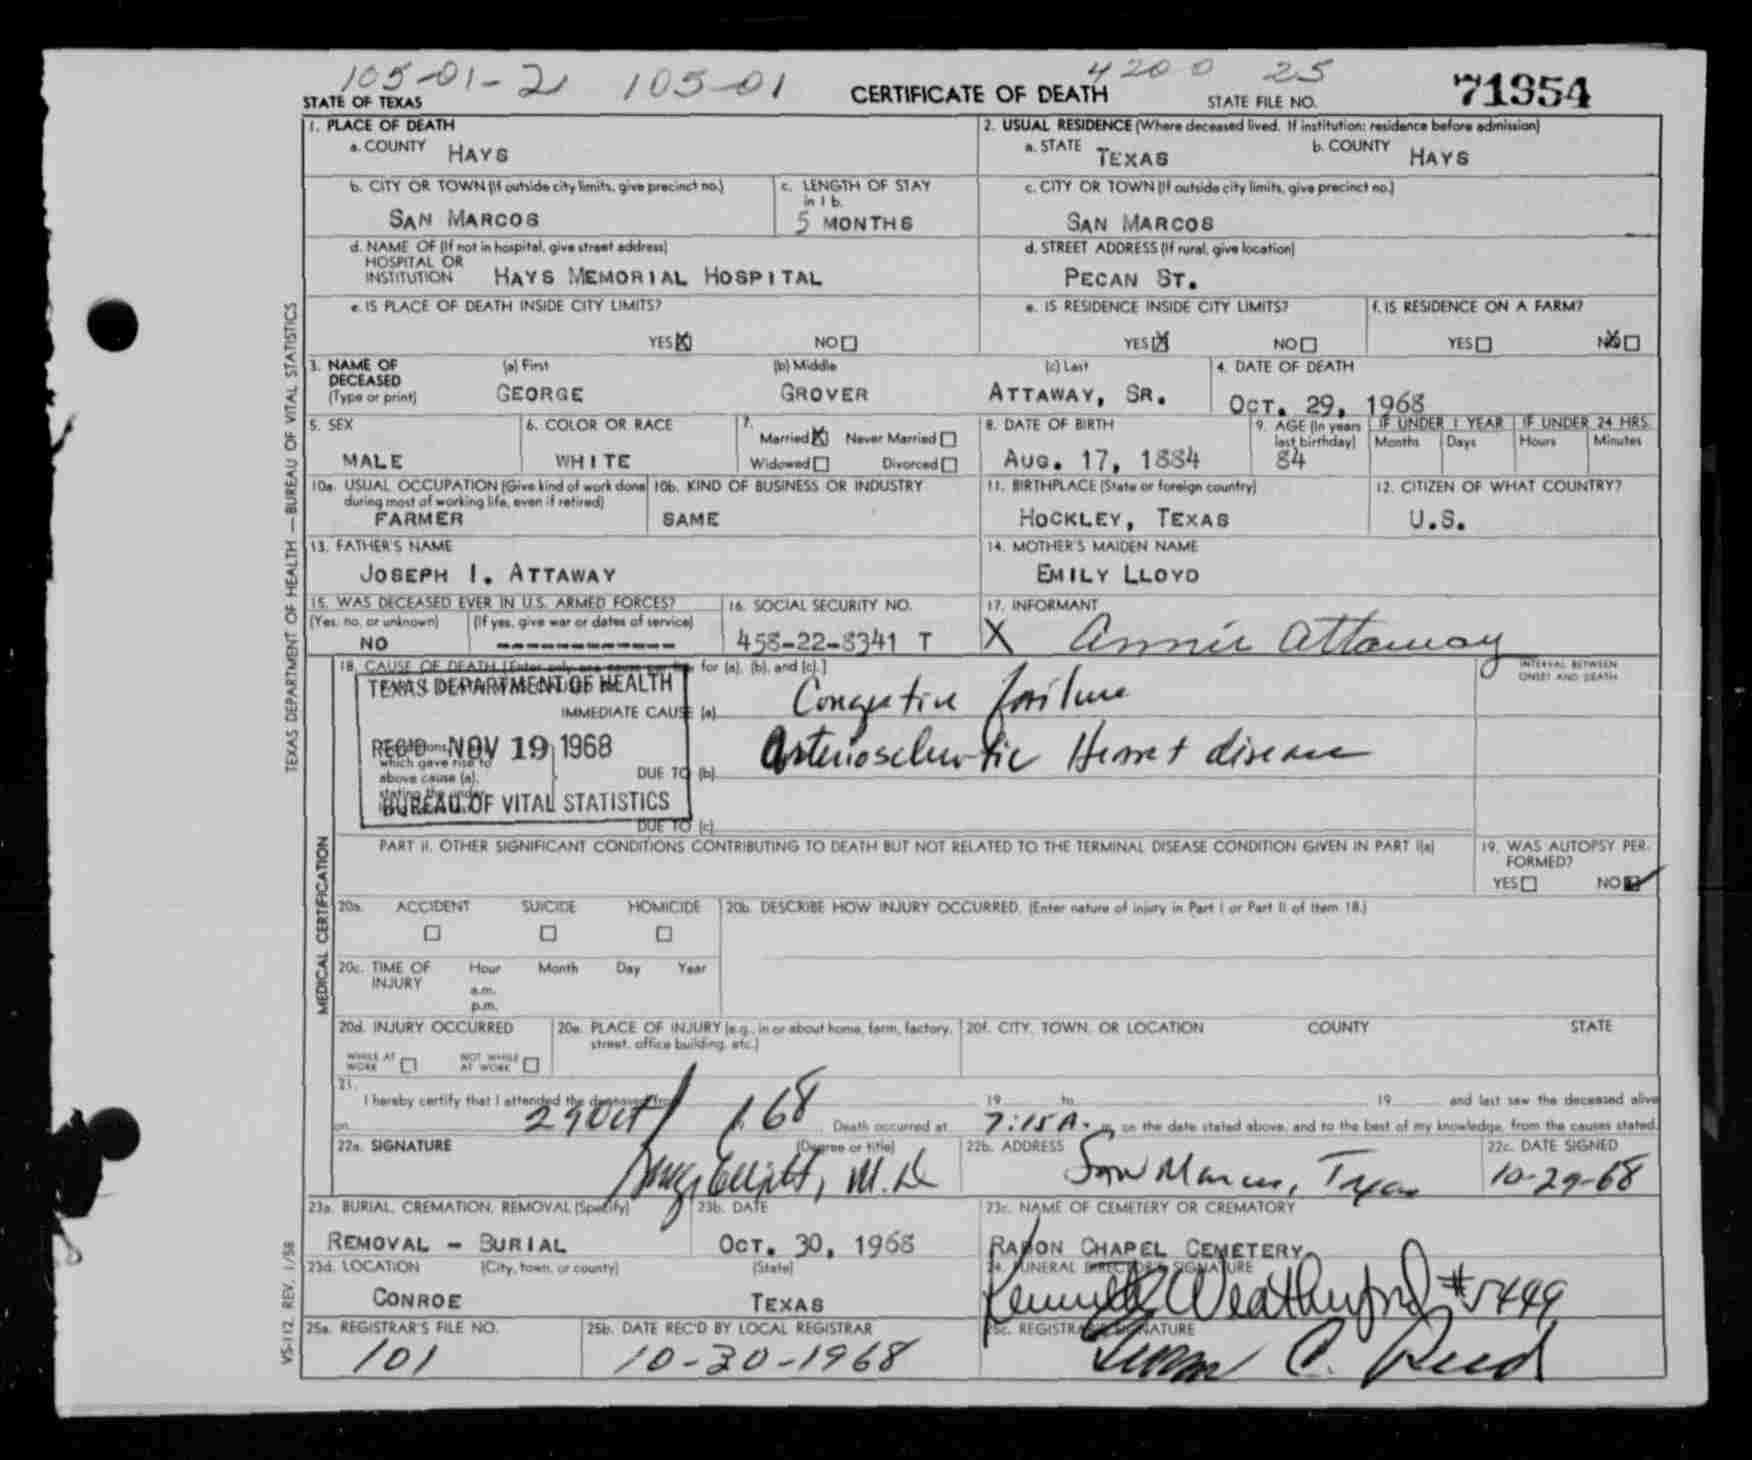 105-01-21 105-01 4200 25
STATE OF TEXAS CERTIFICATE OF DEATH STATE FILE NO. 71354
1. PLACE OF DEATH 2. USUAL RESIDENCE (Where deceased lived. If institution: residence before admission)
a. COUNTY HAYS a. STATE TEXAS b. COUNTY HAYS
b. CITY OR TOWN (If outside city limits, give precinct no.) c. LENGTH OF STAY in 1 b. c. CITY OR TOWN (If outside city limits, give precinct no.)
SAN MARCOS 5 MONTHS SAN MARCOS
d. NAME OF (If not in hospital, give street address) d. STREET ADDRESS (If rural, give location)
HOSPITAL OR
INSTITUTION HAYS MEMORIAL HOSPITAL PECAN ST.
e. IS PLACE OF DEATH INSIDE CITY LIMITS? e. IS RESIDENCE INSIDE CITY LIMITS? f. IS RESIDENCE ON A FARM?
YES X NO YES X NO YES NO X
3. NAME OF DECEASED (Type or print) (a) First (b) Middle (c) Last 4. DATE OF DEATH
GEORGE GROVER ATTAWAY, SR. OCT. 29, 1968
5. SEX 6. COLOR OR RACE 7. Married X Never Married 8. DATE OF BIRTH 9. AGE (In years last birthday) IF UNDER 1 YEAR IF UNDER 24 HRS.
Months Days Hours Minutes
MALE WHITE Widowed Divorced AUG. 17, 1884 84
10a. USUAL OCCUPATION (Give kind of work done during most of working life, even if retired) 10b. KIND OF BUSINESS OR INDUSTRY 11. BIRTHPLACE (State or foreign country) 12. CITIZEN OF WHAT COUNTRY?
FARMER SAME HOCKLEY, TEXAS U.S.
13. FATHER'S NAME 14. MOTHER'S MAIDEN NAME
JOSEPH I. ATTAWAY EMILY LLOYD
15. WAS DECEASED EVER IN U.S. ARMED FORCES? 16. SOCIAL SECURITY NO. 17. INFORMANT
(Yes, no, or unknown) (If yes, give war or dates of service)
NO ------------- 458-22-8341 T X Annie Attaway
18. CAUSE OF DEATH [Enter only one cause per line for (a), (b), and (c).] INTERVAL BETWEEN ONSET AND DEATH
TEXAS DEPARTMENT OF HEALTH
IMMEDIATE CAUSE (a) Congestive failure
REC'D NOV 19 1968
which gave rise to
above cause (a),
stating the under
DUE TO (b) Arteriosclerotic Heart disease
BUREAU OF VITAL STATISTICS
DUE TO (c)
PART II. OTHER SIGNIFICANT CONDITIONS CONTRIBUTING TO DEATH BUT NOT RELATED TO THE TERMINAL DISEASE CONDITION GIVEN IN PART I(a) 19. WAS AUTOPSY PERFORMED?
YES NO
20a. ACCIDENT SUICIDE HOMICIDE 20b. DESCRIBE HOW INJURY OCCURRED. (Enter nature of injury in Part I or Part II of Item 18.)
20c. TIME OF INJURY Hour Month Day Year
a.m.
p.m.
20d. INJURY OCCURRED 20e. PLACE OF INJURY (e.g., in or about home, farm, factory, street, office building, etc.) 20f. CITY, TOWN, OR LOCATION COUNTY STATE
WHILE AT WORK NOT WHILE AT WORK
21. I hereby certify that I attended the deceased from 19 to 19 and last saw the deceased alive
on 29 Oct 1 68 Death occurred at 7:15 A. m. on the date stated above, and to the best of my knowledge, from the causes stated.
22a. SIGNATURE (Degree or title) 22b. ADDRESS 22c. DATE SIGNED
M.D. San Marcos, Texas 10-29-68
23a. BURIAL, CREMATION, REMOVAL (Specify) 23b. DATE 23c. NAME OF CEMETERY OR CREMATORY
REMOVAL - BURIAL OCT. 30, 1968 RABON CHAPEL CEMETERY
23d. LOCATION (City, town, or county) (State) 24. FUNERAL DIRECTOR'S SIGNATURE
CONROE TEXAS Kenneth Weatherford #5449
25a. REGISTRAR'S FILE NO. 25b. DATE REC'D BY LOCAL REGISTRAR 25c. REGISTRAR'S SIGNATURE
101 10-30-1968 C. Reed
TEXAS DEPARTMENT OF HEALTH — BUREAU OF VITAL STATISTICS
MEDICAL CERTIFICATION
VS-112 REV. 1/58